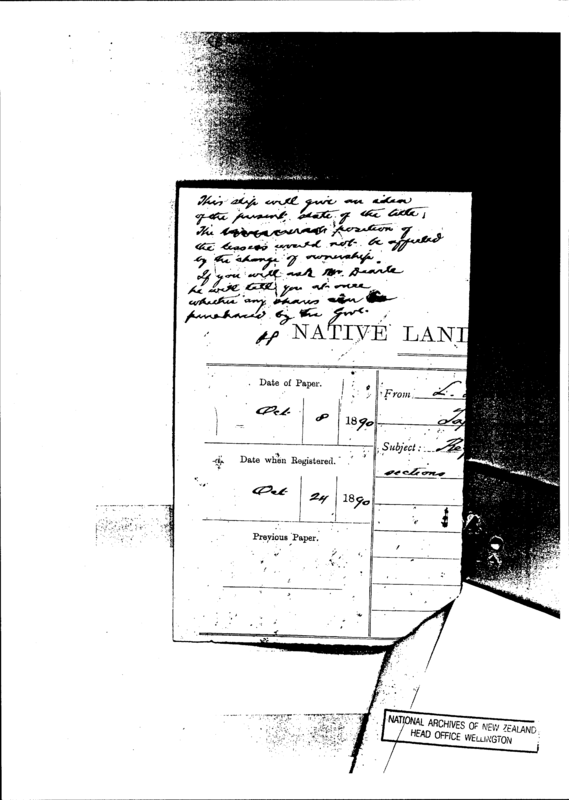 This slip will give an idea
of the present state of the title,
The position of
the lessees would not be affected
by the change of ownership.
If you will ask Mr. Dearle
he will tell you at once
whether any shares
purchased by the Govt.
NATIVE LAND
Date of Paper.
Oct 8 1890
From L.
Subject: Re
sections
Date when Registered.
Oct 24 1890
Previous Paper.
NATIONAL ARCHIVES OF NEW ZEALAND
HEAD OFFICE WELLINGTON